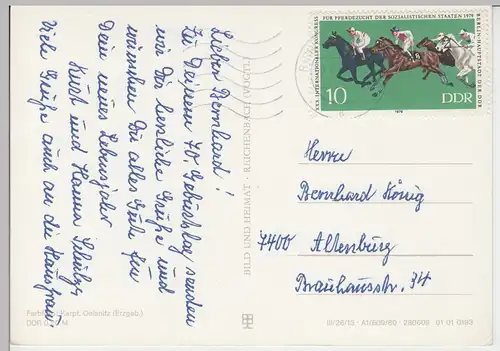 Lieber Bernhard!
Zu Deinem 70. Geburtstag senden
wir Dir herzliche Grüße und
wünschen Dir alles Gute für
Dein neues Lebensjahr
Kurt und Hanna
Viele Grüße auch an die Hausfrau!
BILD UND HEIMAT · REICHENBACH (VOGTL)
XXX. INTERNATIONALER KONGRESS
FÜR PFERDEZUCHT DER SOZIALISTISCHEN STAATEN 1979
BERLIN · HAUPTSTADT DER DDR
10
DDR
1979
Herrn
Bernhard König
7400 Altenburg
Brauhausstr. 34
Oelsnitz (Erzgeb.)
DDR M
III/26/13 · A1/609/80 280609 01 01 0193